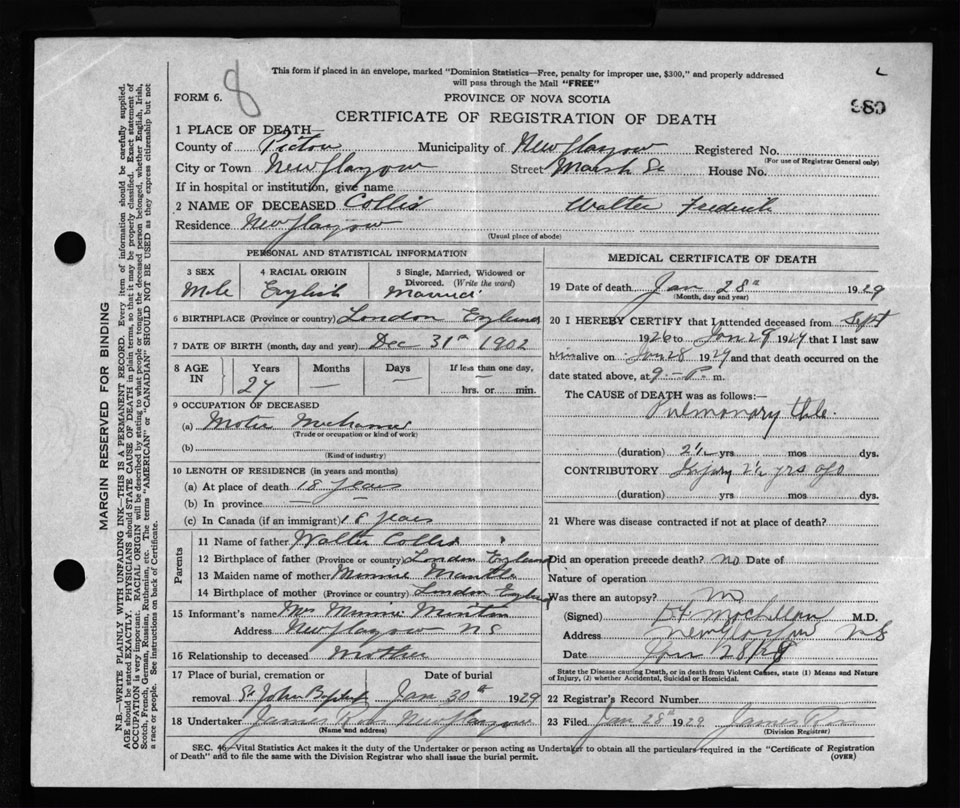 This form if placed in an envelope, marked "Dominion Statistics—Free, penalty for improper use, $300," and properly addressed
will pass through the Mail "FREE"
8
FORM 6.
PROVINCE OF NOVA SCOTIA
980
CERTIFICATE OF REGISTRATION OF DEATH
1 PLACE OF DEATH—
County of Pictou Municipality of New Glasgow Registered No.
(For use of Registrar General only)
City or Town New Glasgow Street Marsh St House No.
If in hospital or institution, give name
2 NAME OF DECEASED Collis Walter
Residence New Glasgow
(Usual place of abode)
PERSONAL AND STATISTICAL INFORMATION
3 SEX 4 RACIAL ORIGIN 5 Single, Married, Widowed or
Divorced. (Write the word)
Male English Married
6 BIRTHPLACE (Province or country) London England
7 DATE OF BIRTH (month, day and year) Dec 31st 1902
8 AGE IN Years Months Days If less than one day,
27 — — hrs. or min.
9 OCCUPATION OF DECEASED
(a) Motor Mechanic
(Trade or occupation or kind of work)
(b)
(Kind of industry)
10 LENGTH OF RESIDENCE (in years and months)
(a) At place of death 18 years
(b) In province — —
(c) In Canada (if an immigrant) 18 years
Parents
11 Name of father Walter Collis
12 Birthplace of father (Province or country) London England
13 Maiden name of mother Minnie Mantle
14 Birthplace of mother (Province or country) London England
15 Informant's name Mrs Minnie Minton
Address New Glasgow N S
16 Relationship to deceased Mother
17 Place of burial, cremation or Date of burial
removal St John Baptist Jan 30th 1929
18 Undertaker James Ross New Glasgow
(Name and address)
MEDICAL CERTIFICATE OF DEATH
19 Date of death Jan 28th 1929
(Month, day and year)
20 I HEREBY CERTIFY that I attended deceased from Sept
1926 to Jan 29 1929 that I last saw
him alive on Jan 28 1929 and that death occurred on the
date stated above, at 9 - P. m.
The CAUSE of DEATH was as follows:—
Pulmonary
(duration) 2½ yrs mos dys.
CONTRIBUTORY Injury 2½ yrs ago
(duration) yrs mos dys.
21 Where was disease contracted if not at place of death?
Did an operation precede death? no Date of
Nature of operation
Was there an autopsy? no
(Signed) M.D.
Address New Glasgow N S
Date Jan 28/29
State the Disease causing Death, or in death from Violent Causes, state (1) Means and Nature
of Injury, (2) whether Accidental, Suicidal or Homicidal.
22 Registrar's Record Number
23 Filed Jan 28th 1929 James Ross
(Division Registrar)
SEC. 46—Vital Statistics Act makes it the duty of the Undertaker or person acting as Undertaker to obtain all the particulars required in the "Certificate of Registration
of Death" and to file the same with the Division Registrar who shall issue the burial permit. (OVER)
MARGIN RESERVED FOR BINDING
N.B.—WRITE PLAINLY WITH UNFADING INK—THIS IS A PERMANENT RECORD. Every item of information should be carefully supplied.
AGE should be stated EXACTLY. PHYSICIANS should STATE CAUSE OF DEATH in plain terms, so that it may be properly classified. Exact statement of
OCCUPATION is very important. RACIAL ORIGIN will be described by stating to what people or tongue the deceased person belonged, whether English, Irish,
Scotch, French, German, Russian, Ruthenian, etc. The terms "AMERICAN" or "CANADIAN" SHOULD NOT BE USED as they express citizenship but not
a race or people. See instructions on back of Certificate.